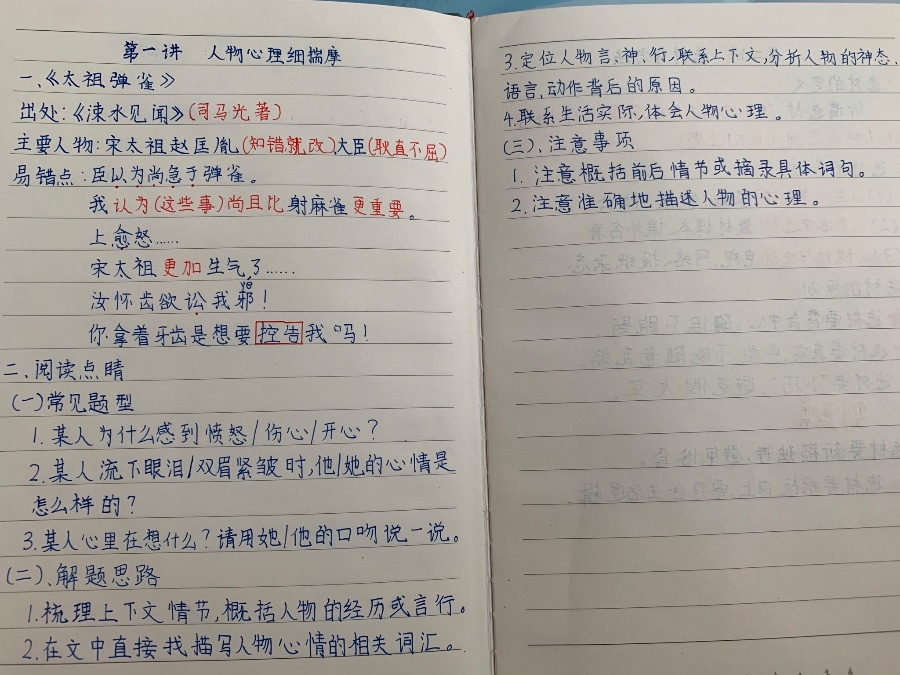 第一讲 人物心理细揣摩
一、《太祖弹雀》
出处:《涑水见闻》(司马光著)
主要人物:宋太祖赵匡胤(知错就改)大臣(耿直不屈)
易错点:臣以为尚急于弹雀。
我认为(这些事)尚且比射麻雀更重要。
上愈怒……
宋太祖更加生气了……
yé
汝怀齿欲讼我邪!
你拿着牙齿是想要控告我吗!
二、阅读点睛
(一)常见题型
1.某人为什么感到愤怒/伤心/开心?
2.某人流下眼泪/双眉紧皱时,他/她的心情是
怎么样的?
3.某人心里在想什么?请用她/他的口吻说一说。
(二)、解题思路
1.梳理上下文情节,概括人物的经历或言行。
2.在文中直接找描写人物心情的相关词汇。
3.定位人物言、神、行,联系上下文,分析人物的神态、
语言,动作背后的原因。
4.联系生活实际,体会人物心理。
(三)、注意事项
1.注意概括前后情节或摘录具体词句。
2.注意准确地描述人物的心理。